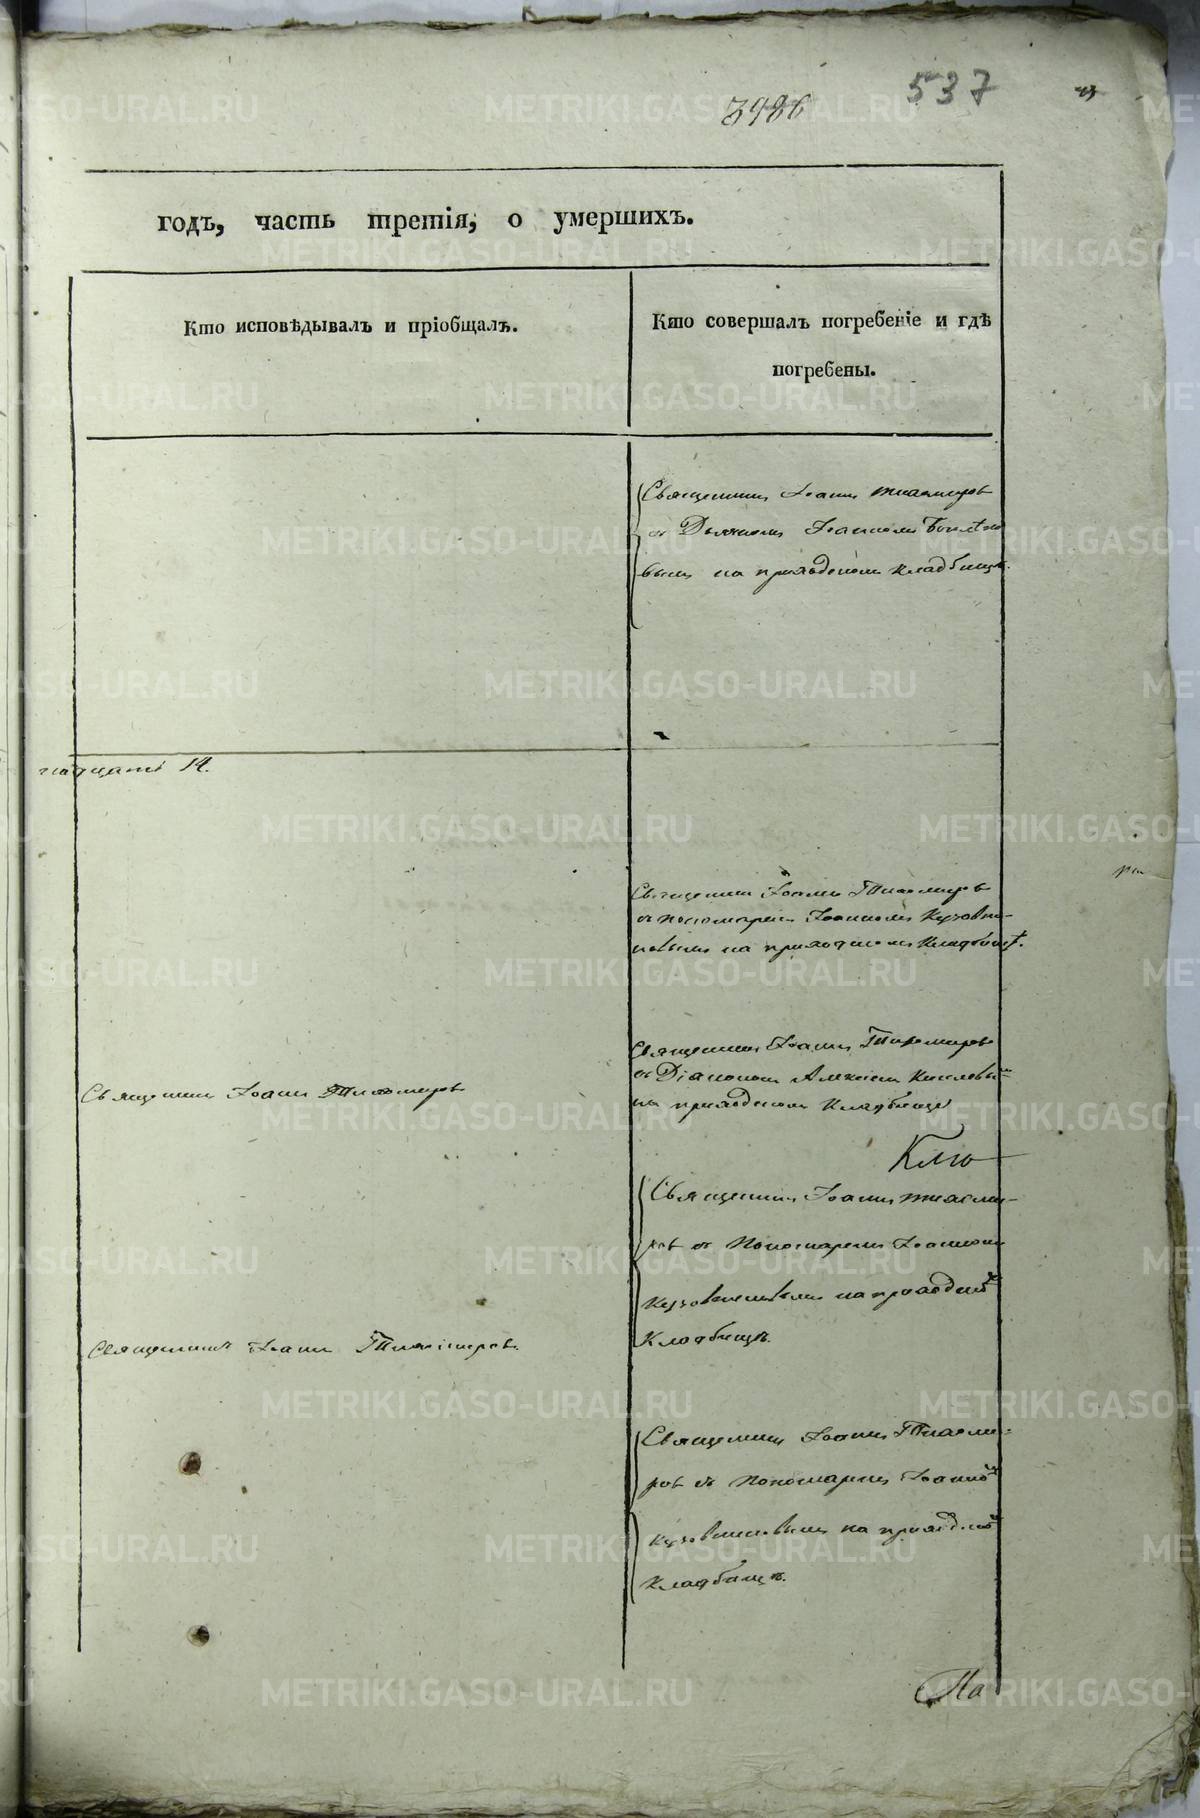 537
3986
годъ, часть третія, о умершихъ.
Кто исповѣдывалъ и пріобщалъ.
Кто совершалъ погребеніе и гдѣ
погребены.
Священникъ Іоаннъ Тихомировъ
съ Дьячкомъ Іоанномъ
вымъ на приходскомъ кладбищѣ.
надцать 14.
Священникъ Іоаннъ Тихомировъ
съ пономаремъ Іоанномъ Кузовни-
ковымъ на приходскомъ Кладбищѣ.
Священникъ Іоаннъ Тихомировъ
съ Діакономъ Алексіемъ
на приходскомъ Кладбище
Священникъ Іоаннъ Тихомировъ
Священникъ Іоаннъ Тихоми-
ровъ съ Пономаремъ Іоанномъ
Кузовниковымъ на приходскомъ
Кладбищѣ.
Священникъ Іоаннъ Тихомировъ.
Священникъ Іоаннъ Тихоми-
ровъ съ Пономаремъ Іоанномъ
Кузовниковымъ на приходскомъ
Кладбищѣ.
На
METRIKI.GASO-URAL.RU